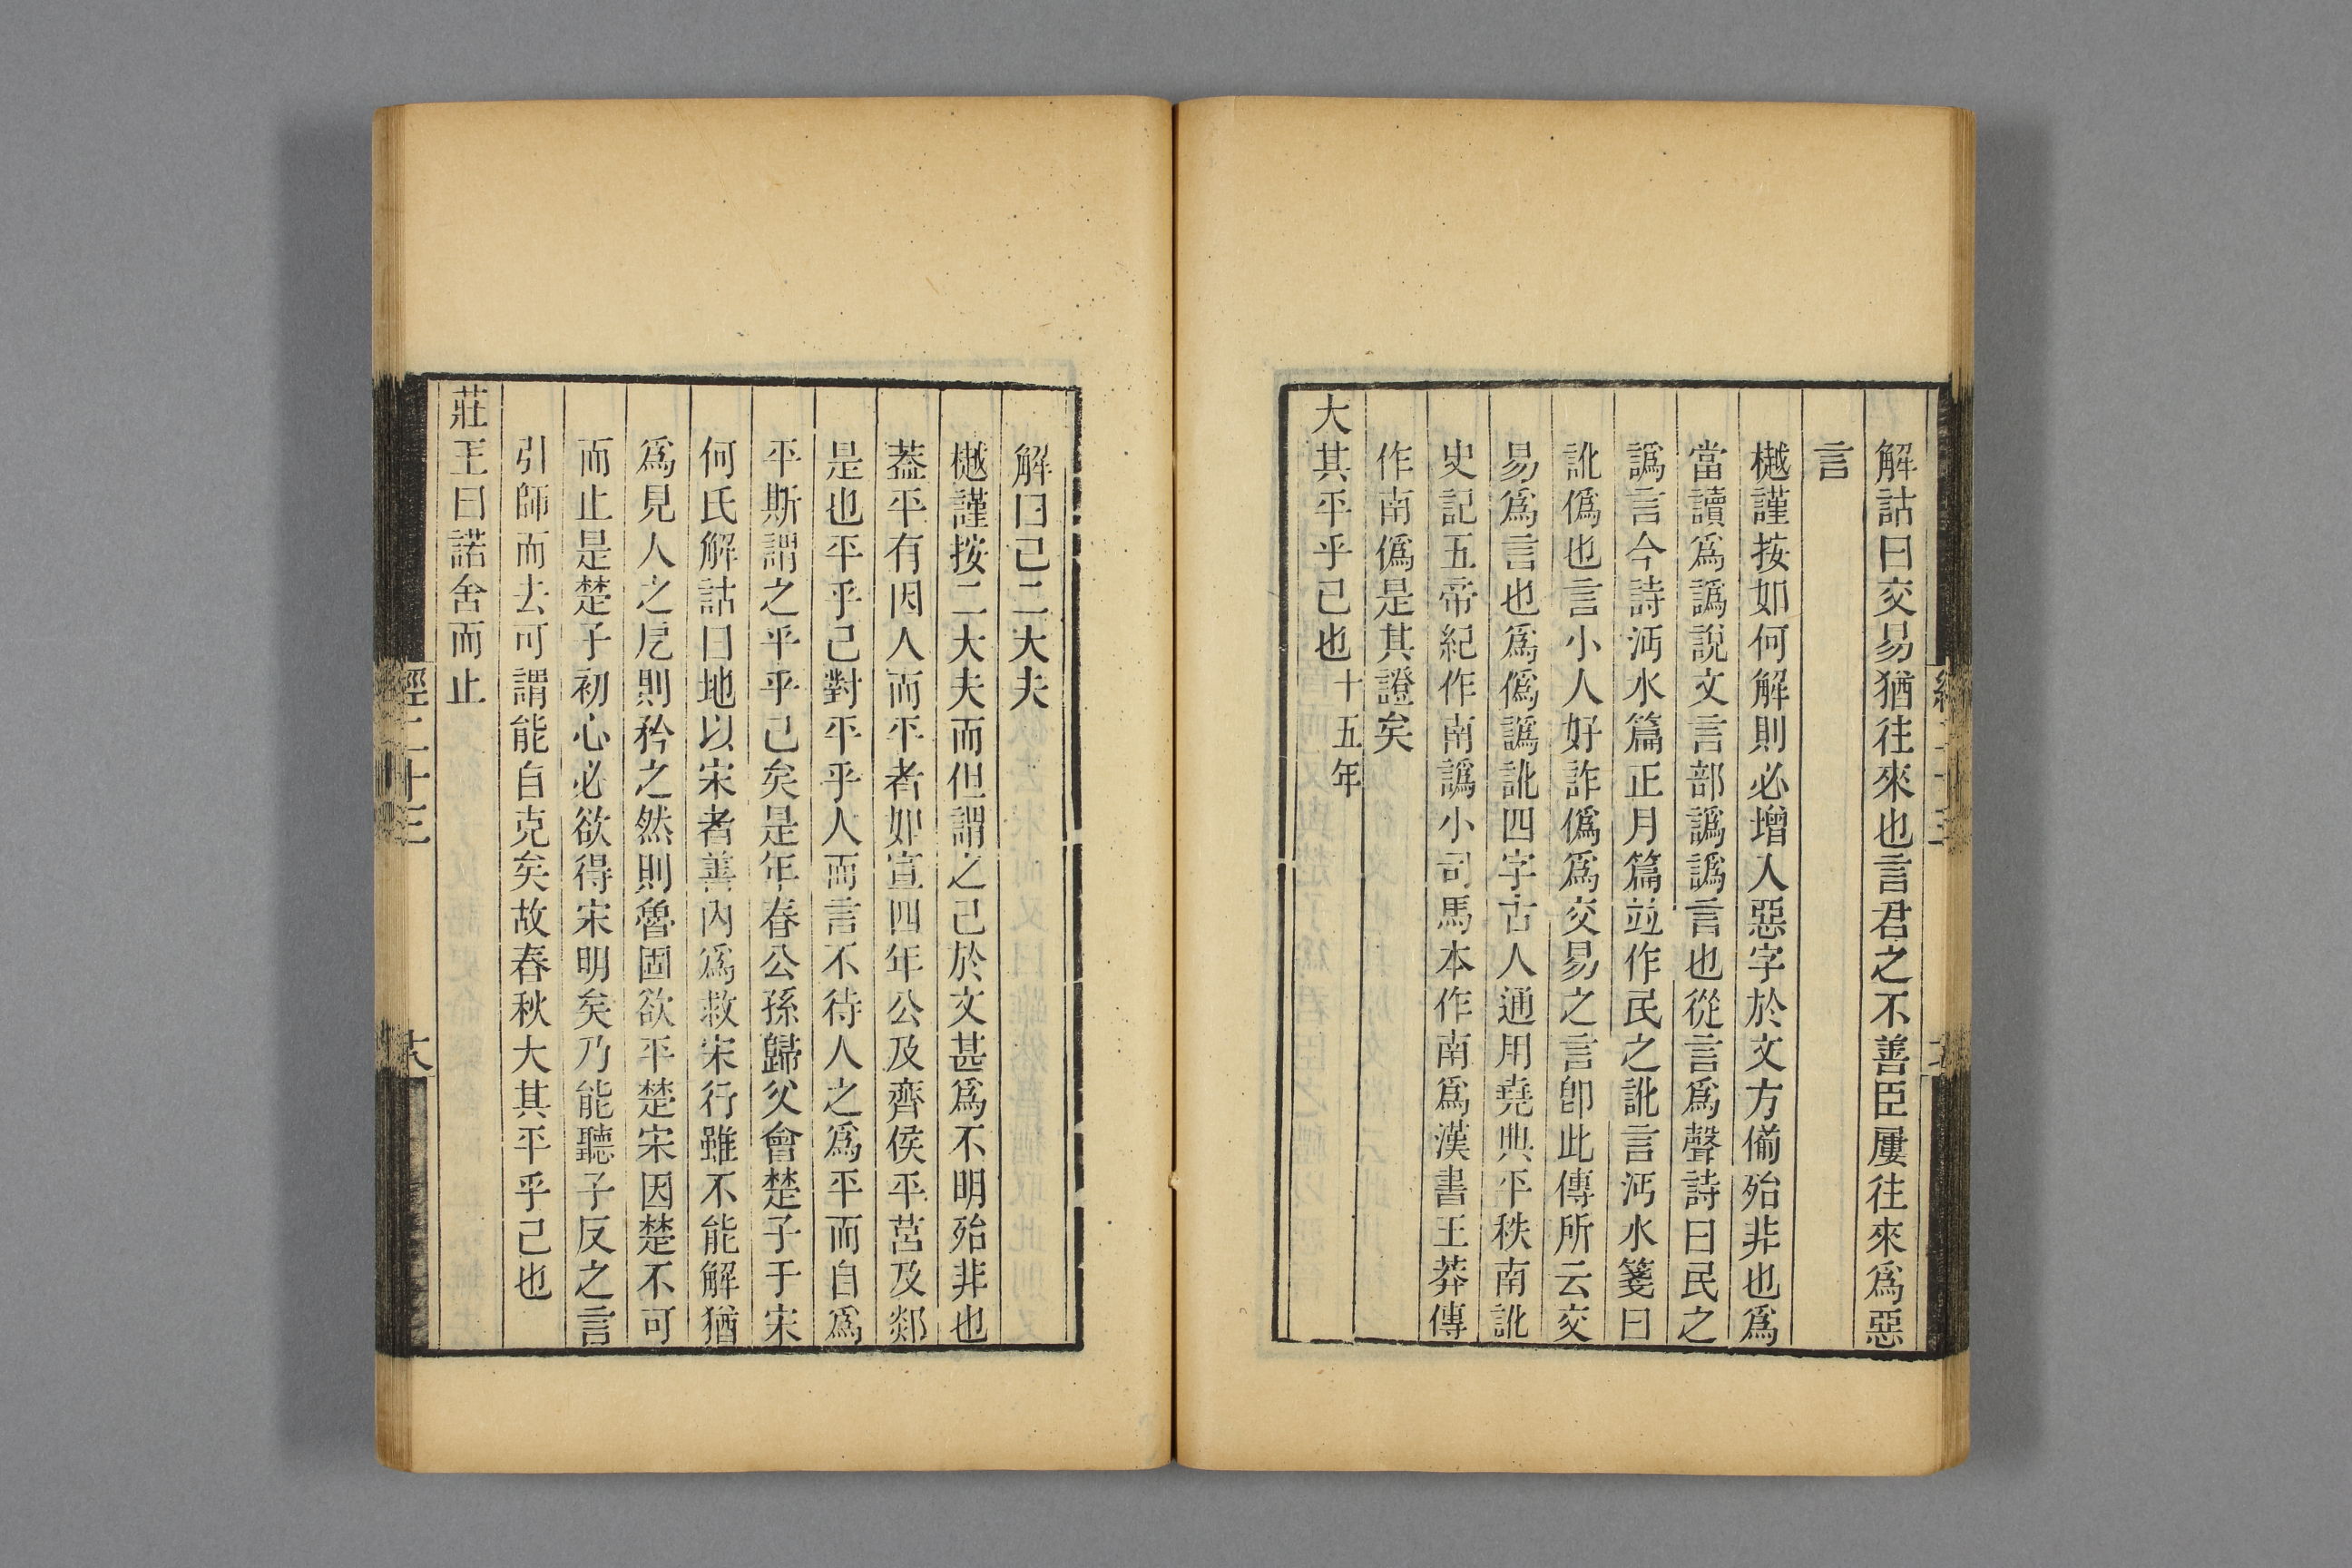 解詁曰交易猶往來也言君之不善臣屢往來爲惡
言
樾謹按如何解則必增入惡字於文方備殆非也爲
當讀爲譌說文言部譌譌言也從言爲聲詩曰民之
譌言今詩沔水篇正月篇竝作民之訛言沔水箋曰
訛僞也言小人好詐僞爲交易之言卽此傳所云交
易爲言也爲僞譌訛四字古人通用堯典平秩南訛
史記五帝紀作南譌小司馬本作南爲漢書王莽傳
作南僞是其證矣
大其平乎己也十五年
解曰己二大夫
樾謹按二大夫而但謂之己於文甚爲不明殆非也
葢平有因人而平者如宣四年公及齊侯平莒及郯
是也平乎己對平乎人而言不待人之爲平而自爲
平斯謂之平乎己矣是年春公孫歸父會楚子于宋
何氏解詁曰地以宋者善內爲救宋行雖不能解猶
爲見人之戹則矜之然則魯固欲平楚宋因楚不可
而止是楚子初心必欲得宋明矣乃能聽子反之言
引師而去可謂能自克矣故春秋大其平乎己也
莊王曰諾舍而止
經二十三